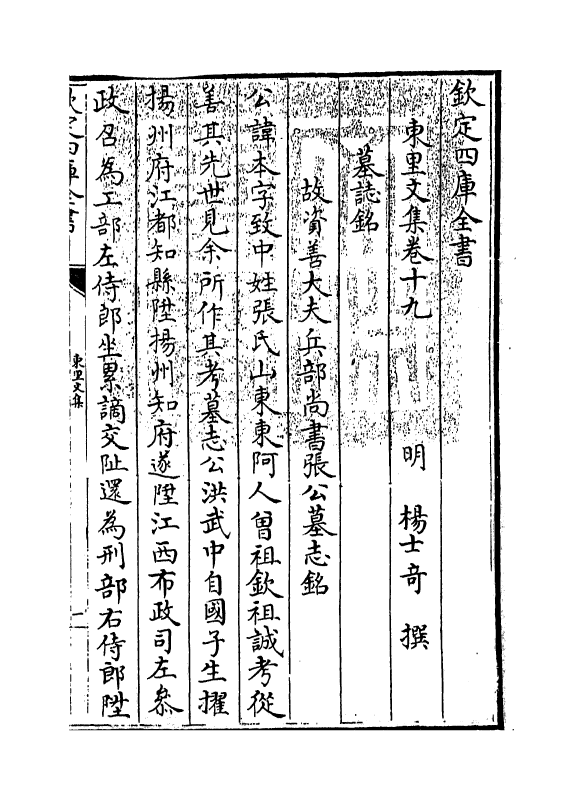 欽定四庫全書
東里文集卷十九
明 楊士竒 撰
墓誌銘
故資善大夫兵部尚書張公墓志銘
公諱本字致中姓張氏山東東阿人曾祖欽祖誠考從
善其先世見余所作其考墓志公洪武中自國子生擢
揚州府江都知縣陞揚州知府遂陞江西布政司左叅
政召為工部左侍郎坐累謫交阯還為刑部右侍郎陞
欽定四庫全書
東里文集